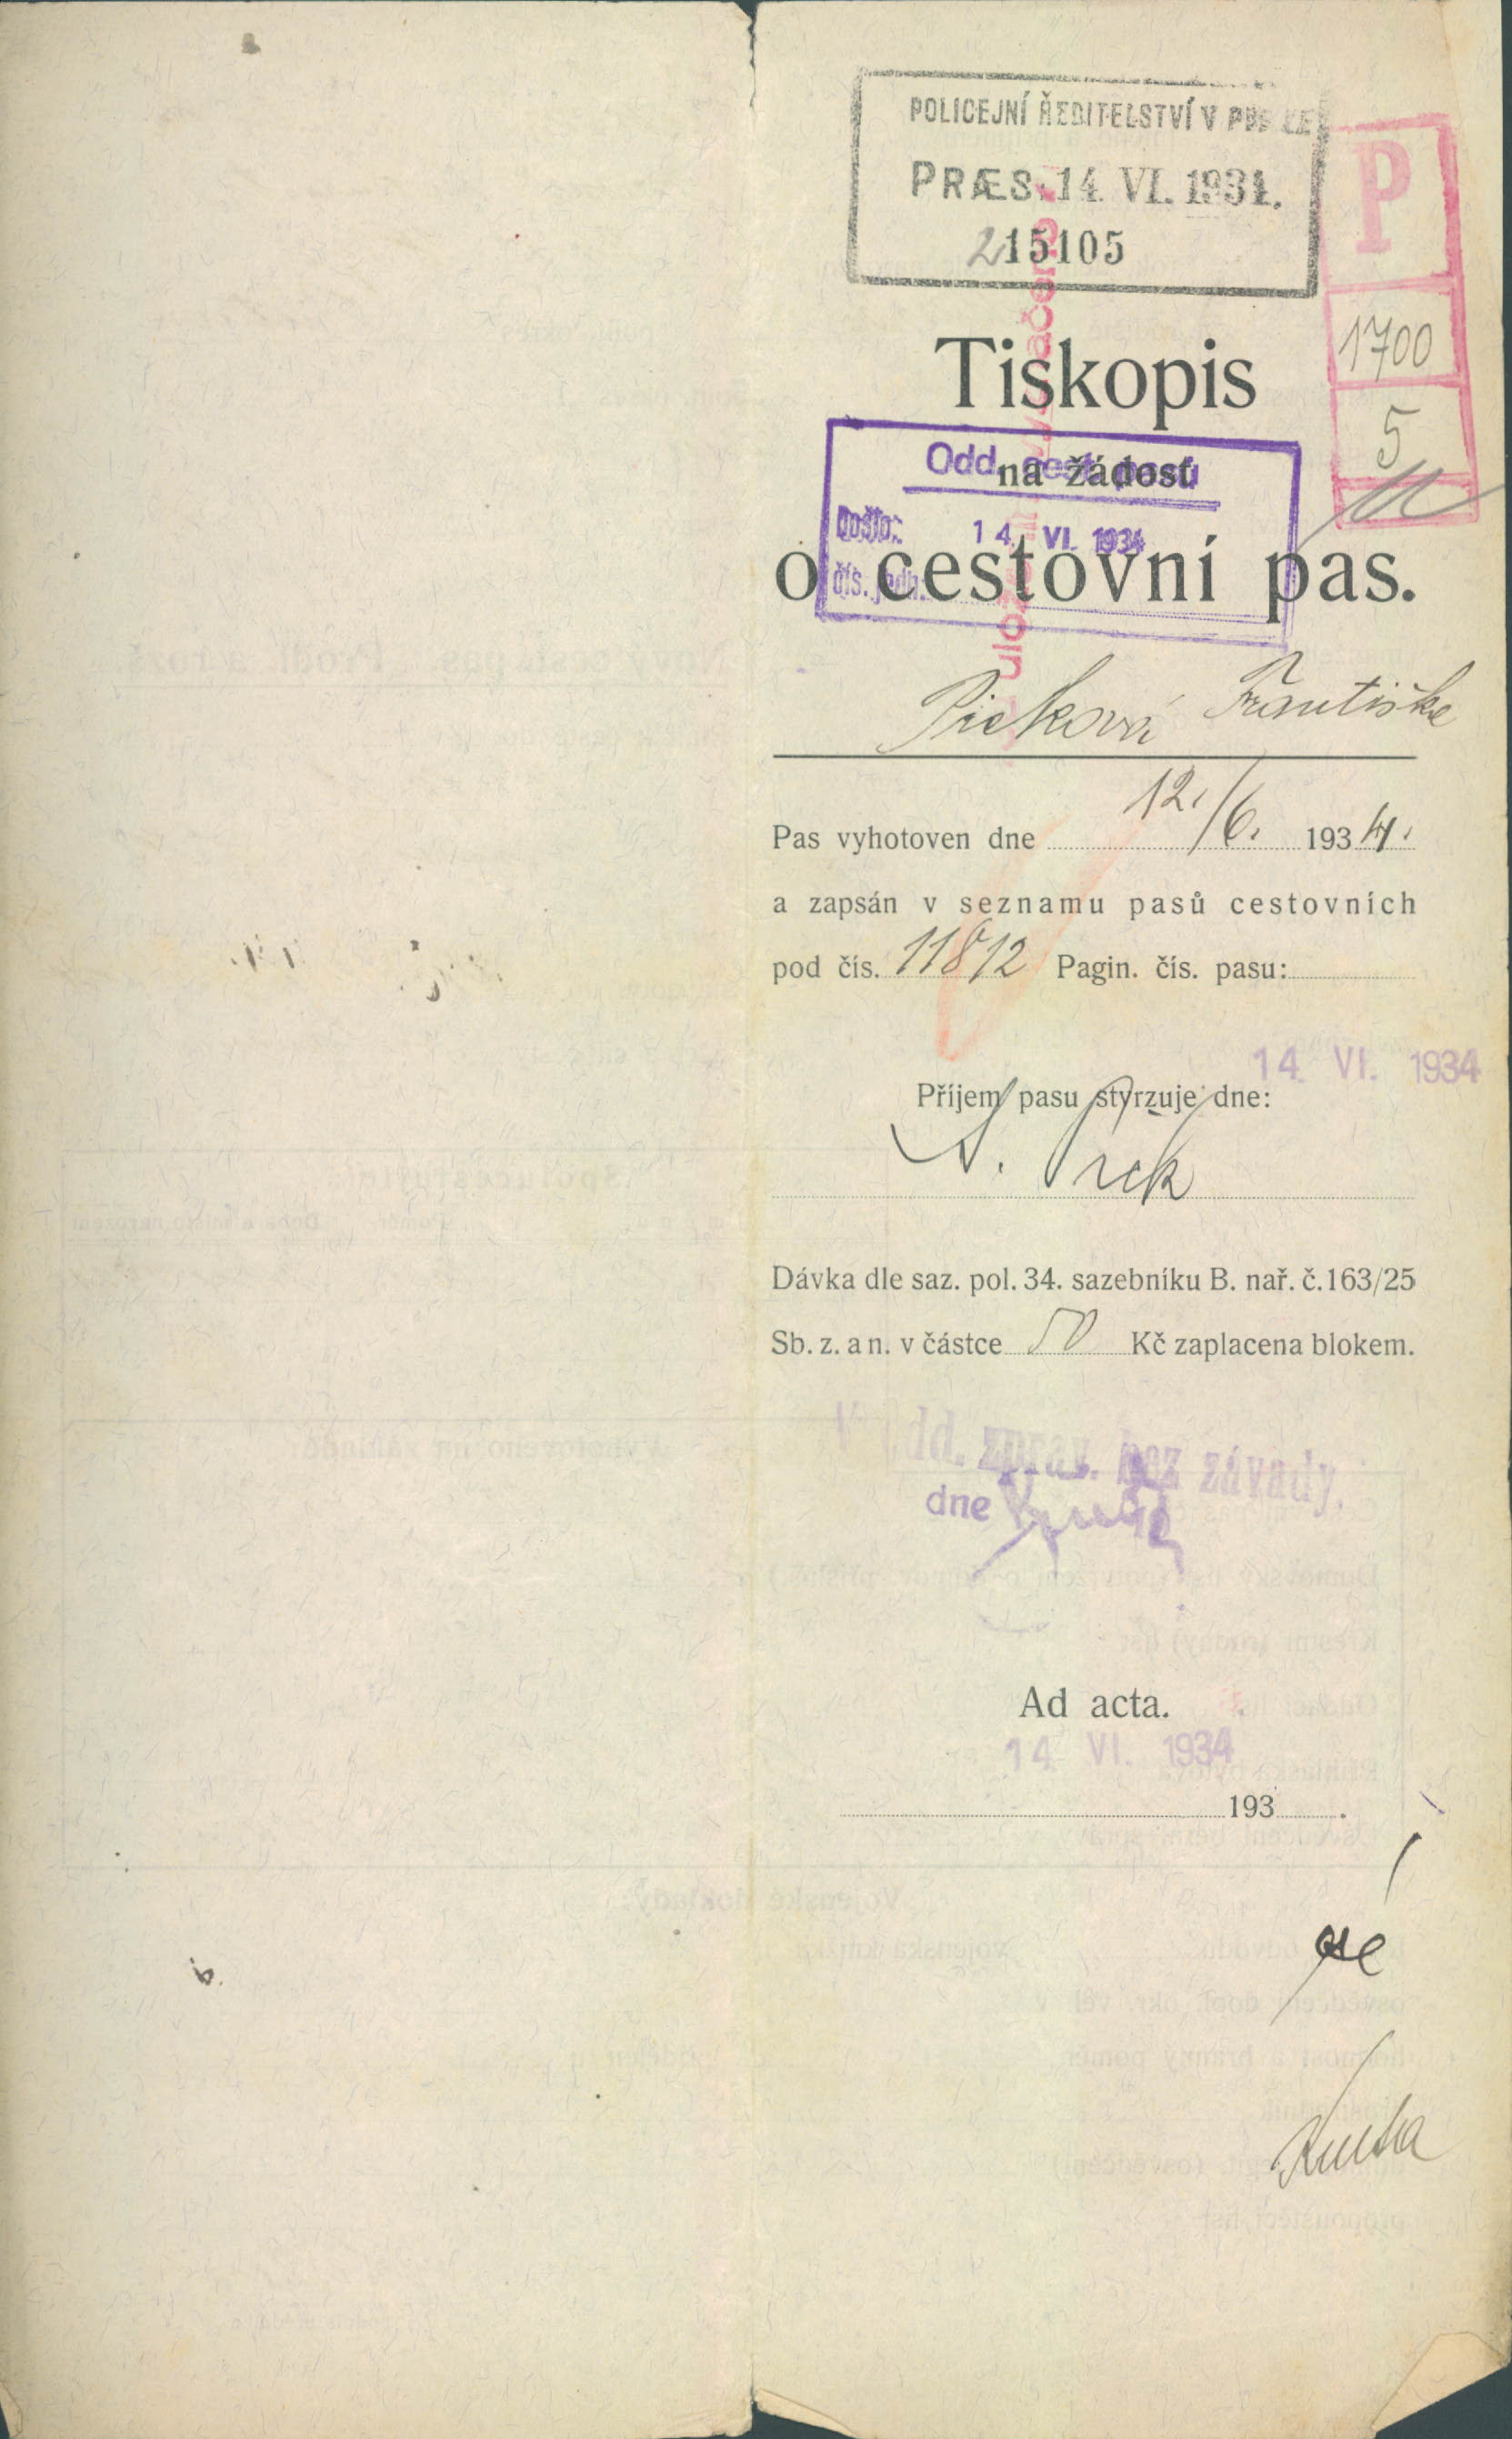 POLICEJNÍ ŘEDITELSTVÍ V
PRÆS. 14. VI. 1934.
215105
P
1700
5
Tiskopis
Odd. cest. pasů
na žádost
Došlo: 14. VI. 1934
čís. jedn.
o cestovní pas.
Picková Františka
Pas vyhotoven dne 12./6. 1934.
a zapsán v seznamu pasů cestovních
pod čís. 11812 Pagin. čís. pasu:
14. VI. 1934
Příjem pasu stvrzuje dne:
Pick
Dávka dle saz. pol. 34. sazebníku B. nař. č. 163/25
Sb. z. a n. v částce 50 Kč zaplacena blokem.
V odd. zprav. bez závady.
dne
Ad acta.
14. VI. 1934
193 .